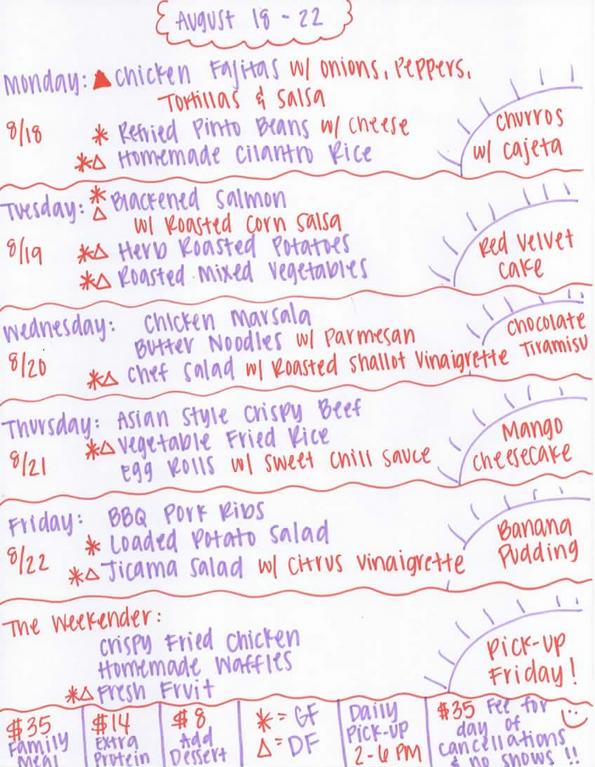 August 18 - 22
Monday: ▲ Chicken Fajitas w/ onions, Peppers,
Tortillas & Salsa
8/18 * Refried Pinto Beans w/ cheese
*△ Homemade Cilantro Rice
Churros
w/ Cajeta
Tuesday: *△ Blackened Salmon
w/ Roasted Corn Salsa
8/19 *△ Herb Roasted Potatoes
*△ Roasted Mixed Vegetables
Red Velvet
Cake
Wednesday: Chicken Marsala
Butter Noodles w/ Parmesan
8/20 *△ Chef Salad w/ Roasted Shallot Vinaigrette
Chocolate
Tiramisu
Thursday: Asian Style Crispy Beef
*△ Vegetable Fried Rice
8/21 Egg Rolls w/ Sweet Chili Sauce
Mango
Cheesecake
Friday: BBQ Pork Ribs
* Loaded Potato Salad
8/22 *△ Jicama Salad w/ Citrus Vinaigrette
Banana
Pudding
The Weekender:
Crispy Fried Chicken
Homemade Waffles
*△ Fresh Fruit
Pick-up
Friday!
$35
Family
Meal
$14
Extra
Protein
$8
Add
Dessert
* = GF
△ = DF
Daily
Pick-up
2-6 PM
$35 Fee for
day of
cancellations
& no shows !!